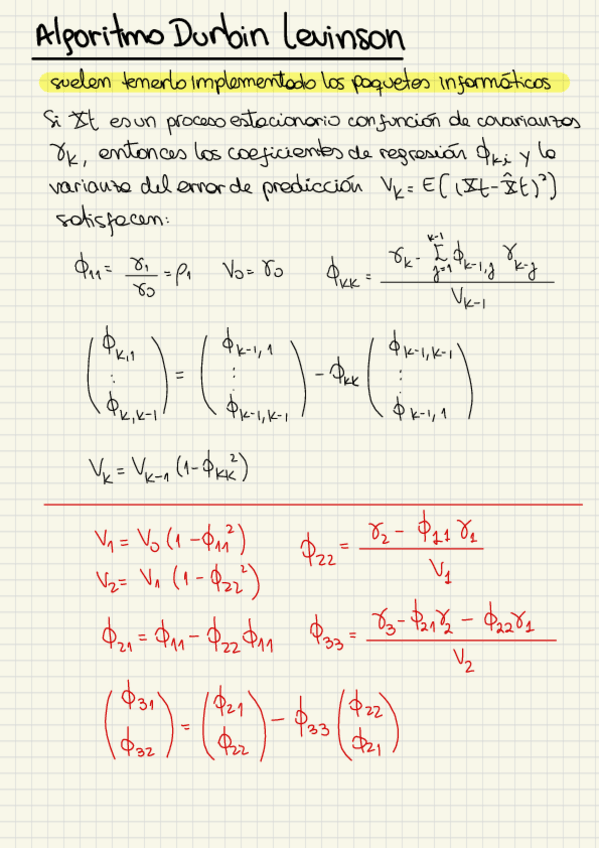 Algoritmo Durbin Levinson
suelen tenerlo implementado los paquetes informáticos
Si Xt es un proceso estacionario con función de covarianzas
γk, entonces los coeficientes de regresión ϕki y la
varianza del error de predicción Vk = E((Xt - X̂t)²)
satisfacen:
ϕ11 = γ1/γ0 = ρ1 V0 = γ0 ϕKK = (γk - Σ_{j=1}^{k-1} ϕk-1,j γk-j) / Vk-1
(ϕk,1 : ϕk,k-1) = (ϕk-1,1 : ϕk-1,k-1) - ϕkk (ϕk-1,k-1 : ϕk-1,1)
Vk = Vk-1 (1-ϕKK²)
V1 = V0 (1 - ϕ11²) ϕ22 = (γ2 - ϕ11 γ1) / V1
V2 = V1 (1 - ϕ22²)
ϕ21 = ϕ11 - ϕ22 ϕ11 ϕ33 = (γ3 - ϕ21γ2 - ϕ22γ1) / V2
(ϕ31 ϕ32) = (ϕ21 ϕ22) - ϕ33 (ϕ22 ϕ21)